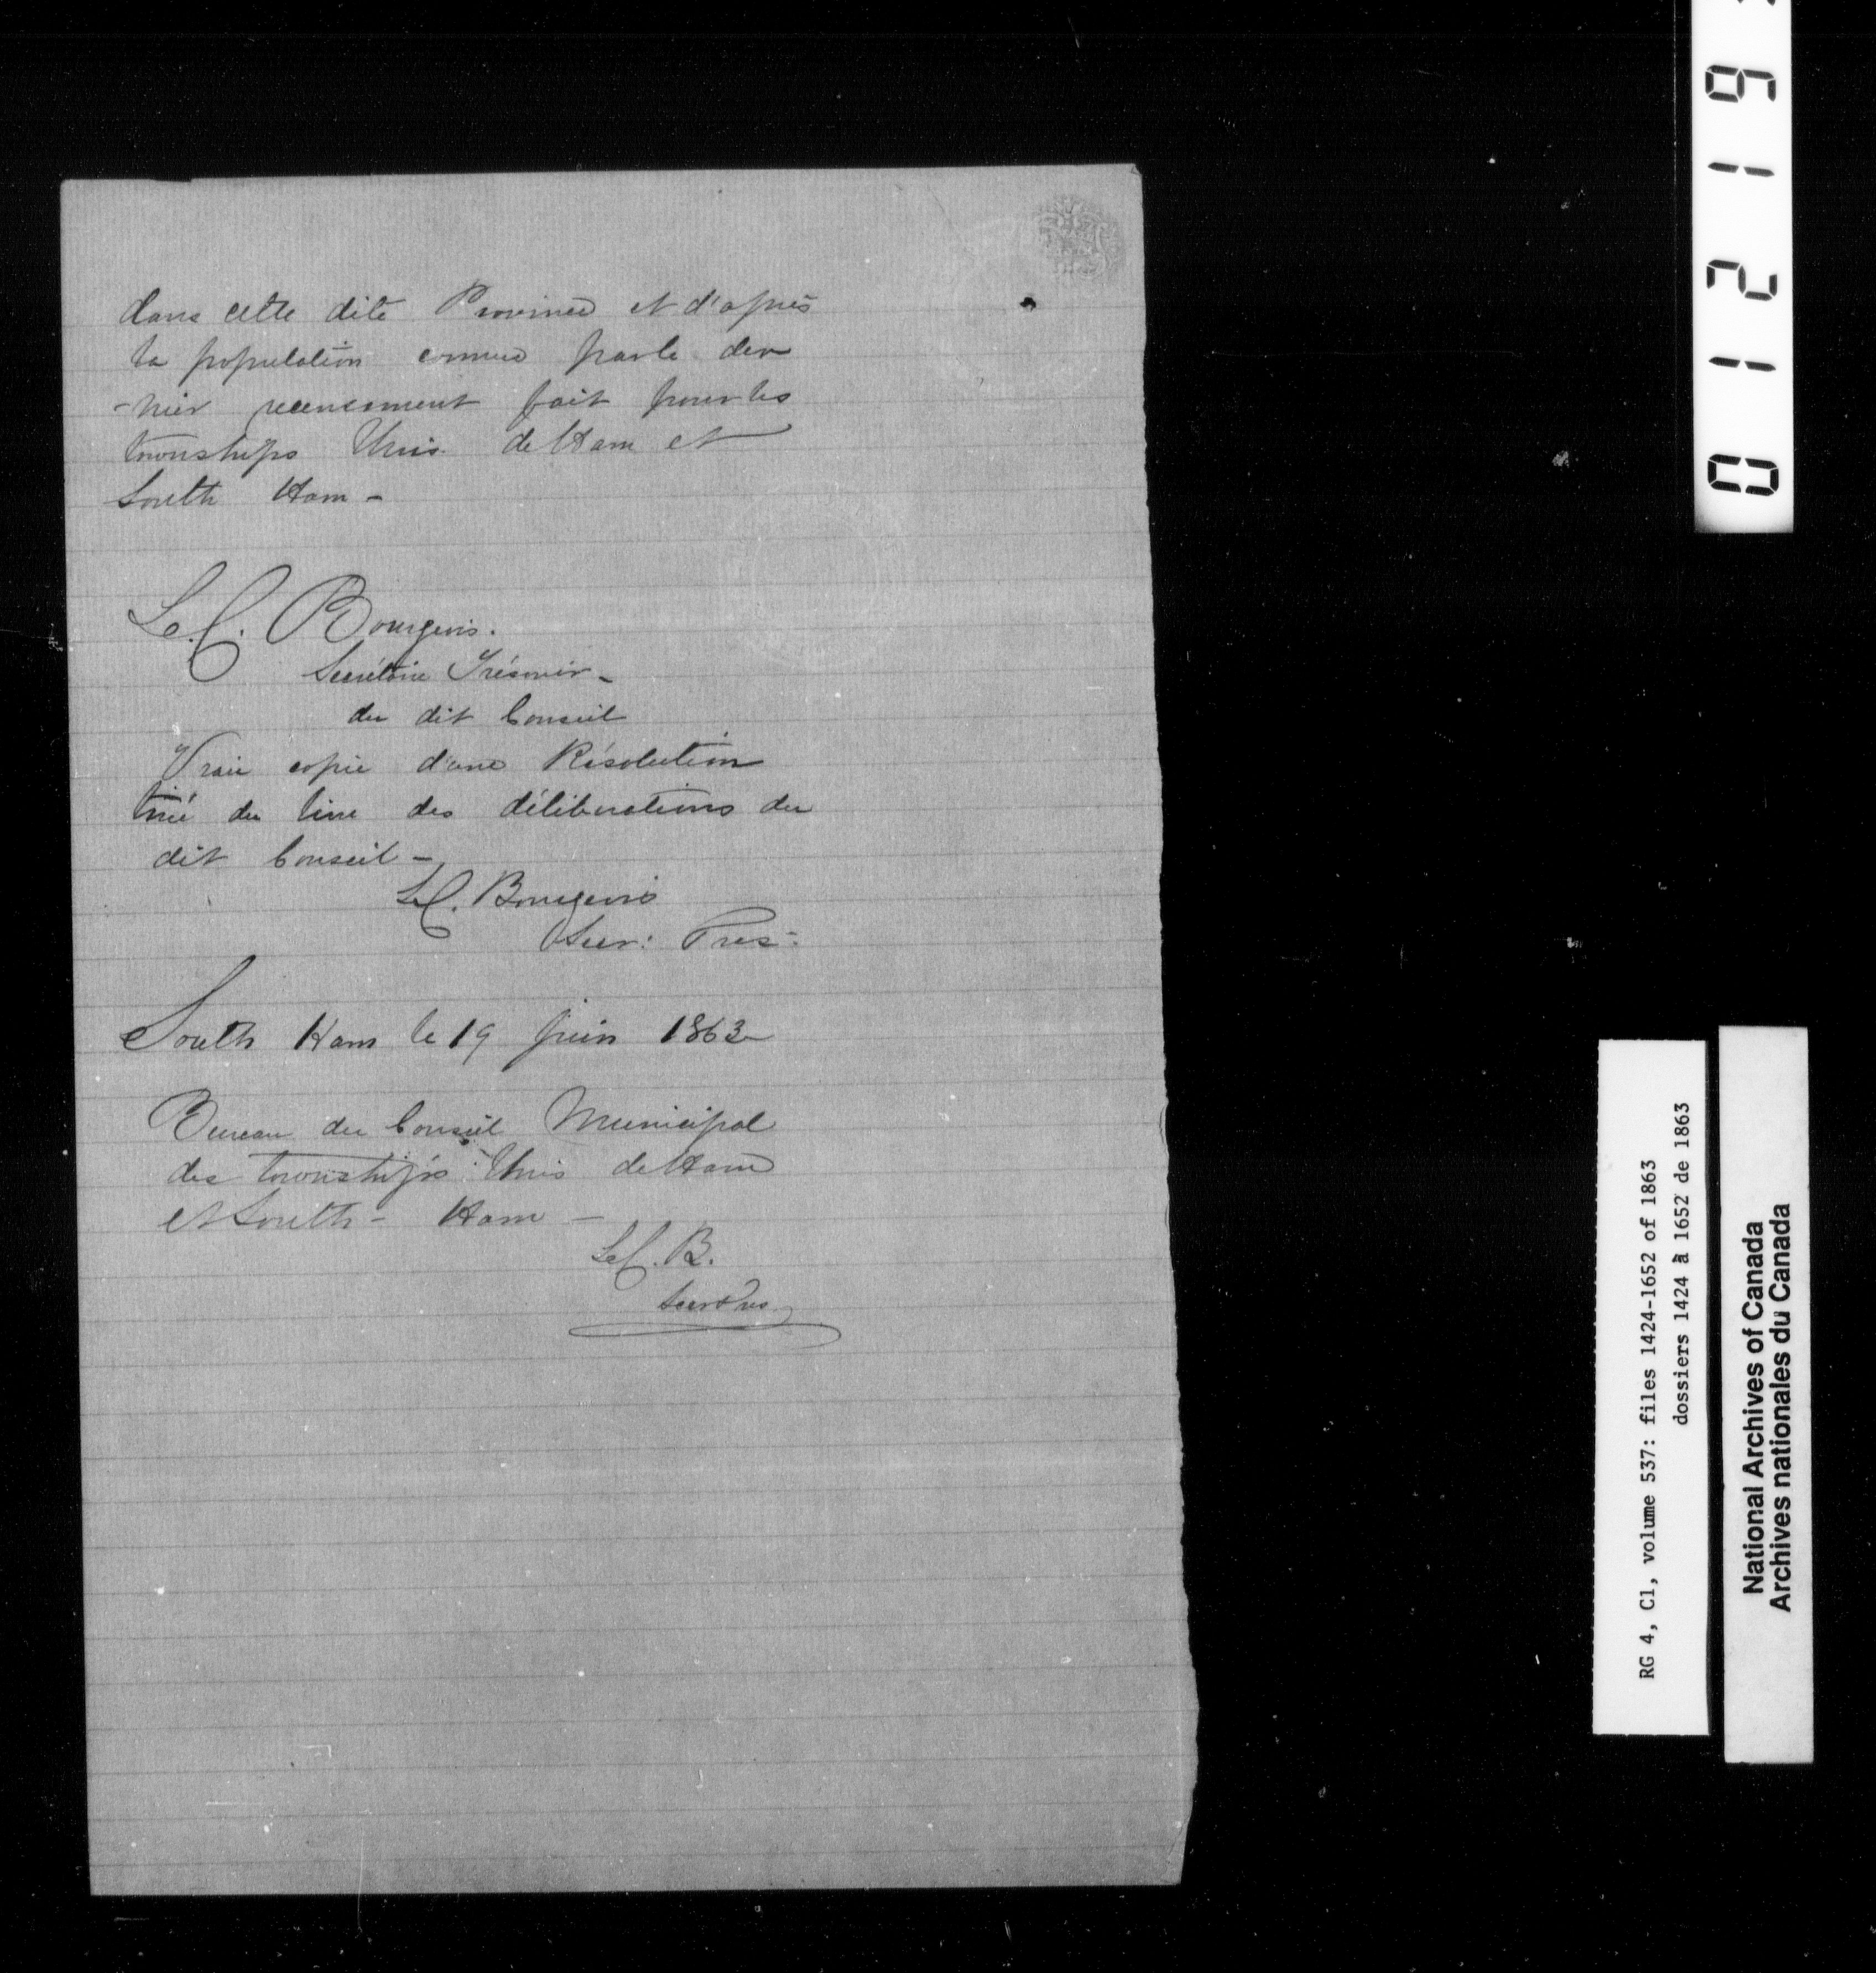 dans cette dite Province et d'après
la population connue par le der
-nier recensement fait pour les
townships Unis de Ham et
South Ham -
L. C. Bourgeois.
Secrétaire Trésorier -
du dit Conseil
Vraie copie d'une Résolution
tiré du livre des délibérations du
dit Conseil -
L. C. Bourgeois
Secr: Tres:
South Ham le 19 juin 1863
Bureau du Conseil Municipal
des townships Unis de Ham
et South - Ham -
L. C. B.
Secr Tres
0 1 2 1 9
RG 4, C1, volume 537: files 1424-1652 of 1863
dossiers 1424 à 1652 de 1863
National Archives of Canada
Archives nationales du Canada